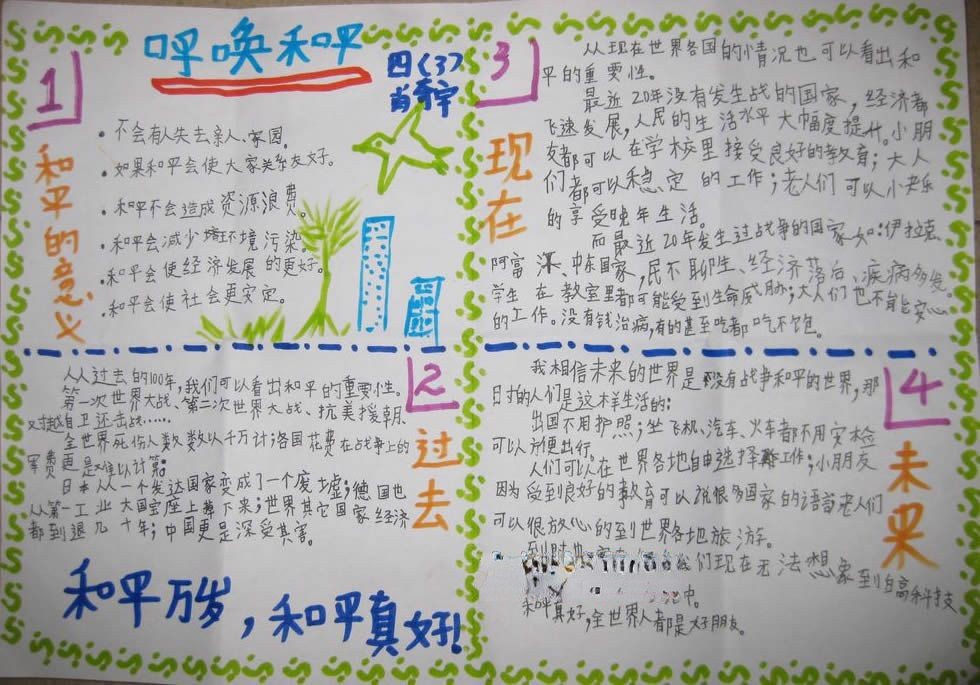 呼唤和平
四(3)
肖奇宇
1
和平的意义
·不会有人失去亲人、家园。
·如果和平会使大家关系友好。
·和平不会造成资源浪费。
·和平会减少环境污染。
·和平会使经济发展的更好。
·和平会使社会更安定。
2
过去
从过去的100年,我们可以看出和平的重要性。
第一次世界大战、第二次世界大战、抗美援朝、
对越自卫还击战……
全世界死伤人数数以千万计;各国花费在战争上的
军费更是难以计算。
日本从一个发达国家变成了一个废墟;德国也
从第一工业大国宝座上摔下来;世界其它国家经济
都到退几十年;中国更是深受其害。
和平万岁,和平真好!
3
现在
从现在世界各国的情况也可以看出和
平的重要性。
最近20年没有发生战的国家,经济都
飞速发展,人民的生活水平大幅度提什。小朋
友都可以在学校里接受良好的教育;大人
们都可以稳定的工作;老人们可以小夬乐
的享受晚年生活。
而最近20年发生过战争的国家如:伊拉克、
阿富汗、中东国家,民不聊生、经济落后、疾病多发。
学生在教室里都可能受到生命威胁;大人们也不能安心
的工作。没有钱治病,有的甚至吃都吃不饱。
4
未来
我相信未来的世界是没有战争和平的世界,那
日寸的人们是这样生活的:
出国不用护照;坐飞机、汽车、火车都不用安检
可以方便出行。
人们可以在世界各地自由选择工作;小朋友
因为受到良好的教育可以说很多国家的语言老人们
可以很放心的到世界各地旅游。
到时
们现在无法想象到白高科技
中。
和平真好,全世界人都是好朋友。